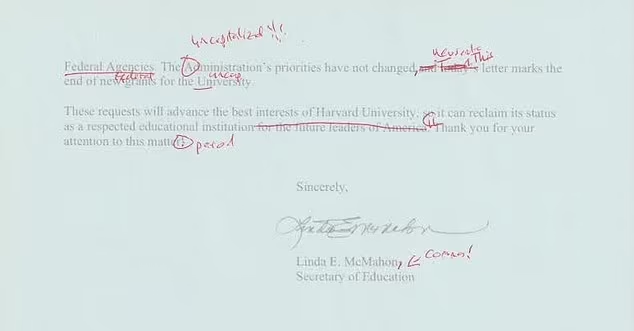 uncapitalized !!!
Federal Agencies. The Administration's priorities have not changed, and today's letter marks the
This
end of new grants for the University.
federal
uncap
These requests will advance the best interests of Harvard University, so it can reclaim its status
as a respected educational institution for the future leaders of America. Thank you for your
attention to this matter
period
Sincerely,
Linda E. McMahon, comma!
Secretary of Education